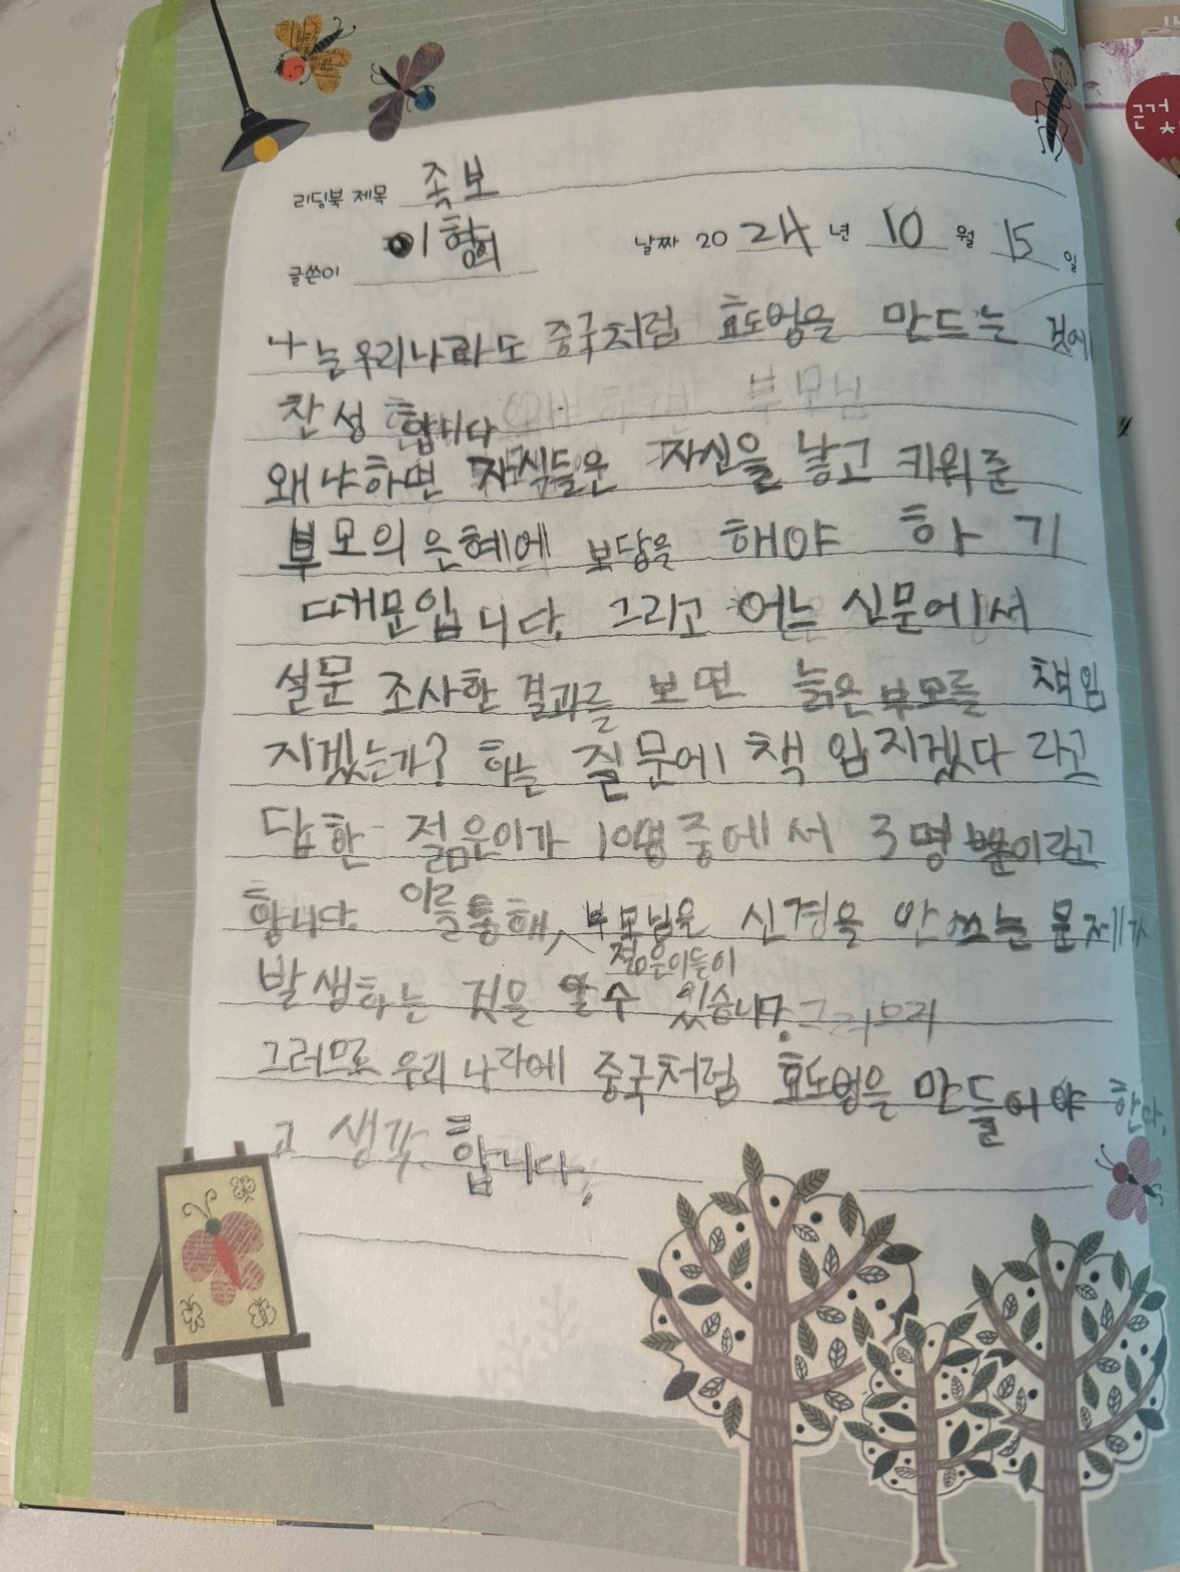 리딩북 제목 족보
글쓴이 이형
날짜 2024년 10월 15일
나는우리나라도 중국처럼 효도법을 만드는 것에
찬성 합니다
왜냐하면 자식들은 자신을 낳고 키워준
부모의 은혜에 보답을 해야 하기
때문입니다. 그리고 어느 신문에서
설문 조사한 결과를 보면 늙은 부모를 책임
지겠는가? 하는 질문에 책임지겠다 라고
답한 젊은이가 10명중에서 3명뿐이라고
합니다. 이를통해 부모님은 신경을 안쓰는 문제가
젊은이들이
발생하는 것을 알수 있습니다. 그러므러
그러므로 우리 나라에 중국처럼 효도법을 만들어야 한다.
고 생각 합니다.